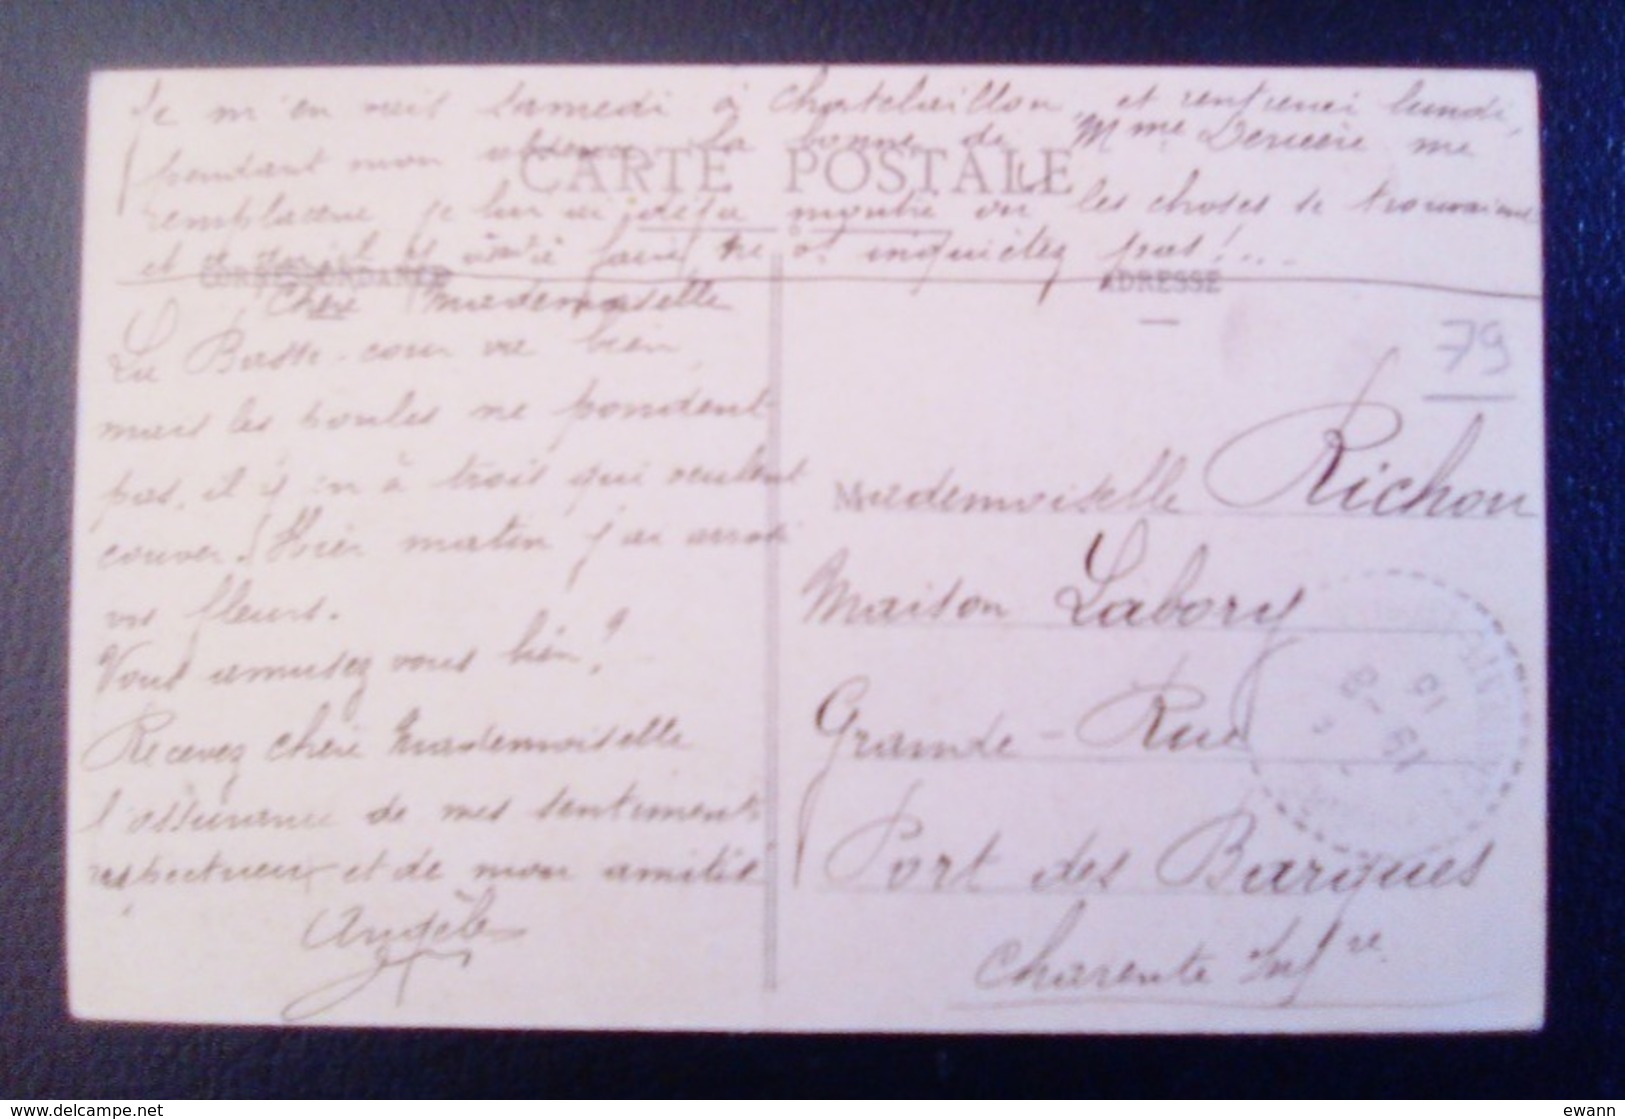 Je m'en vais samedi à Chatelaillon, et rentrerai lundi,
pendant mon absence la bonne de Mme me
CARTE POSTALE
remplacera je lui ai montré où les choses se trouvaient
et à faire ne v. inquiétez pas!...
CORRESPONDANCE
ADRESSE
Chère Mademoiselle
La Basse-cour va bien,
mais les poules ne pondent
pas, il y en à trois qui veulent
couver. Hier matin j'ai arrosé
vos fleurs.
Vous amusez vous bien?
Recevez chère Mademoiselle
l'assurance de mes sentiments
respectueux et de mon amitié
Angèle
79
Mademoiselle Richou
Maison Labory
Grande-Rue
Port des Barques
Charente Infre
www.delcampe.net
ewann